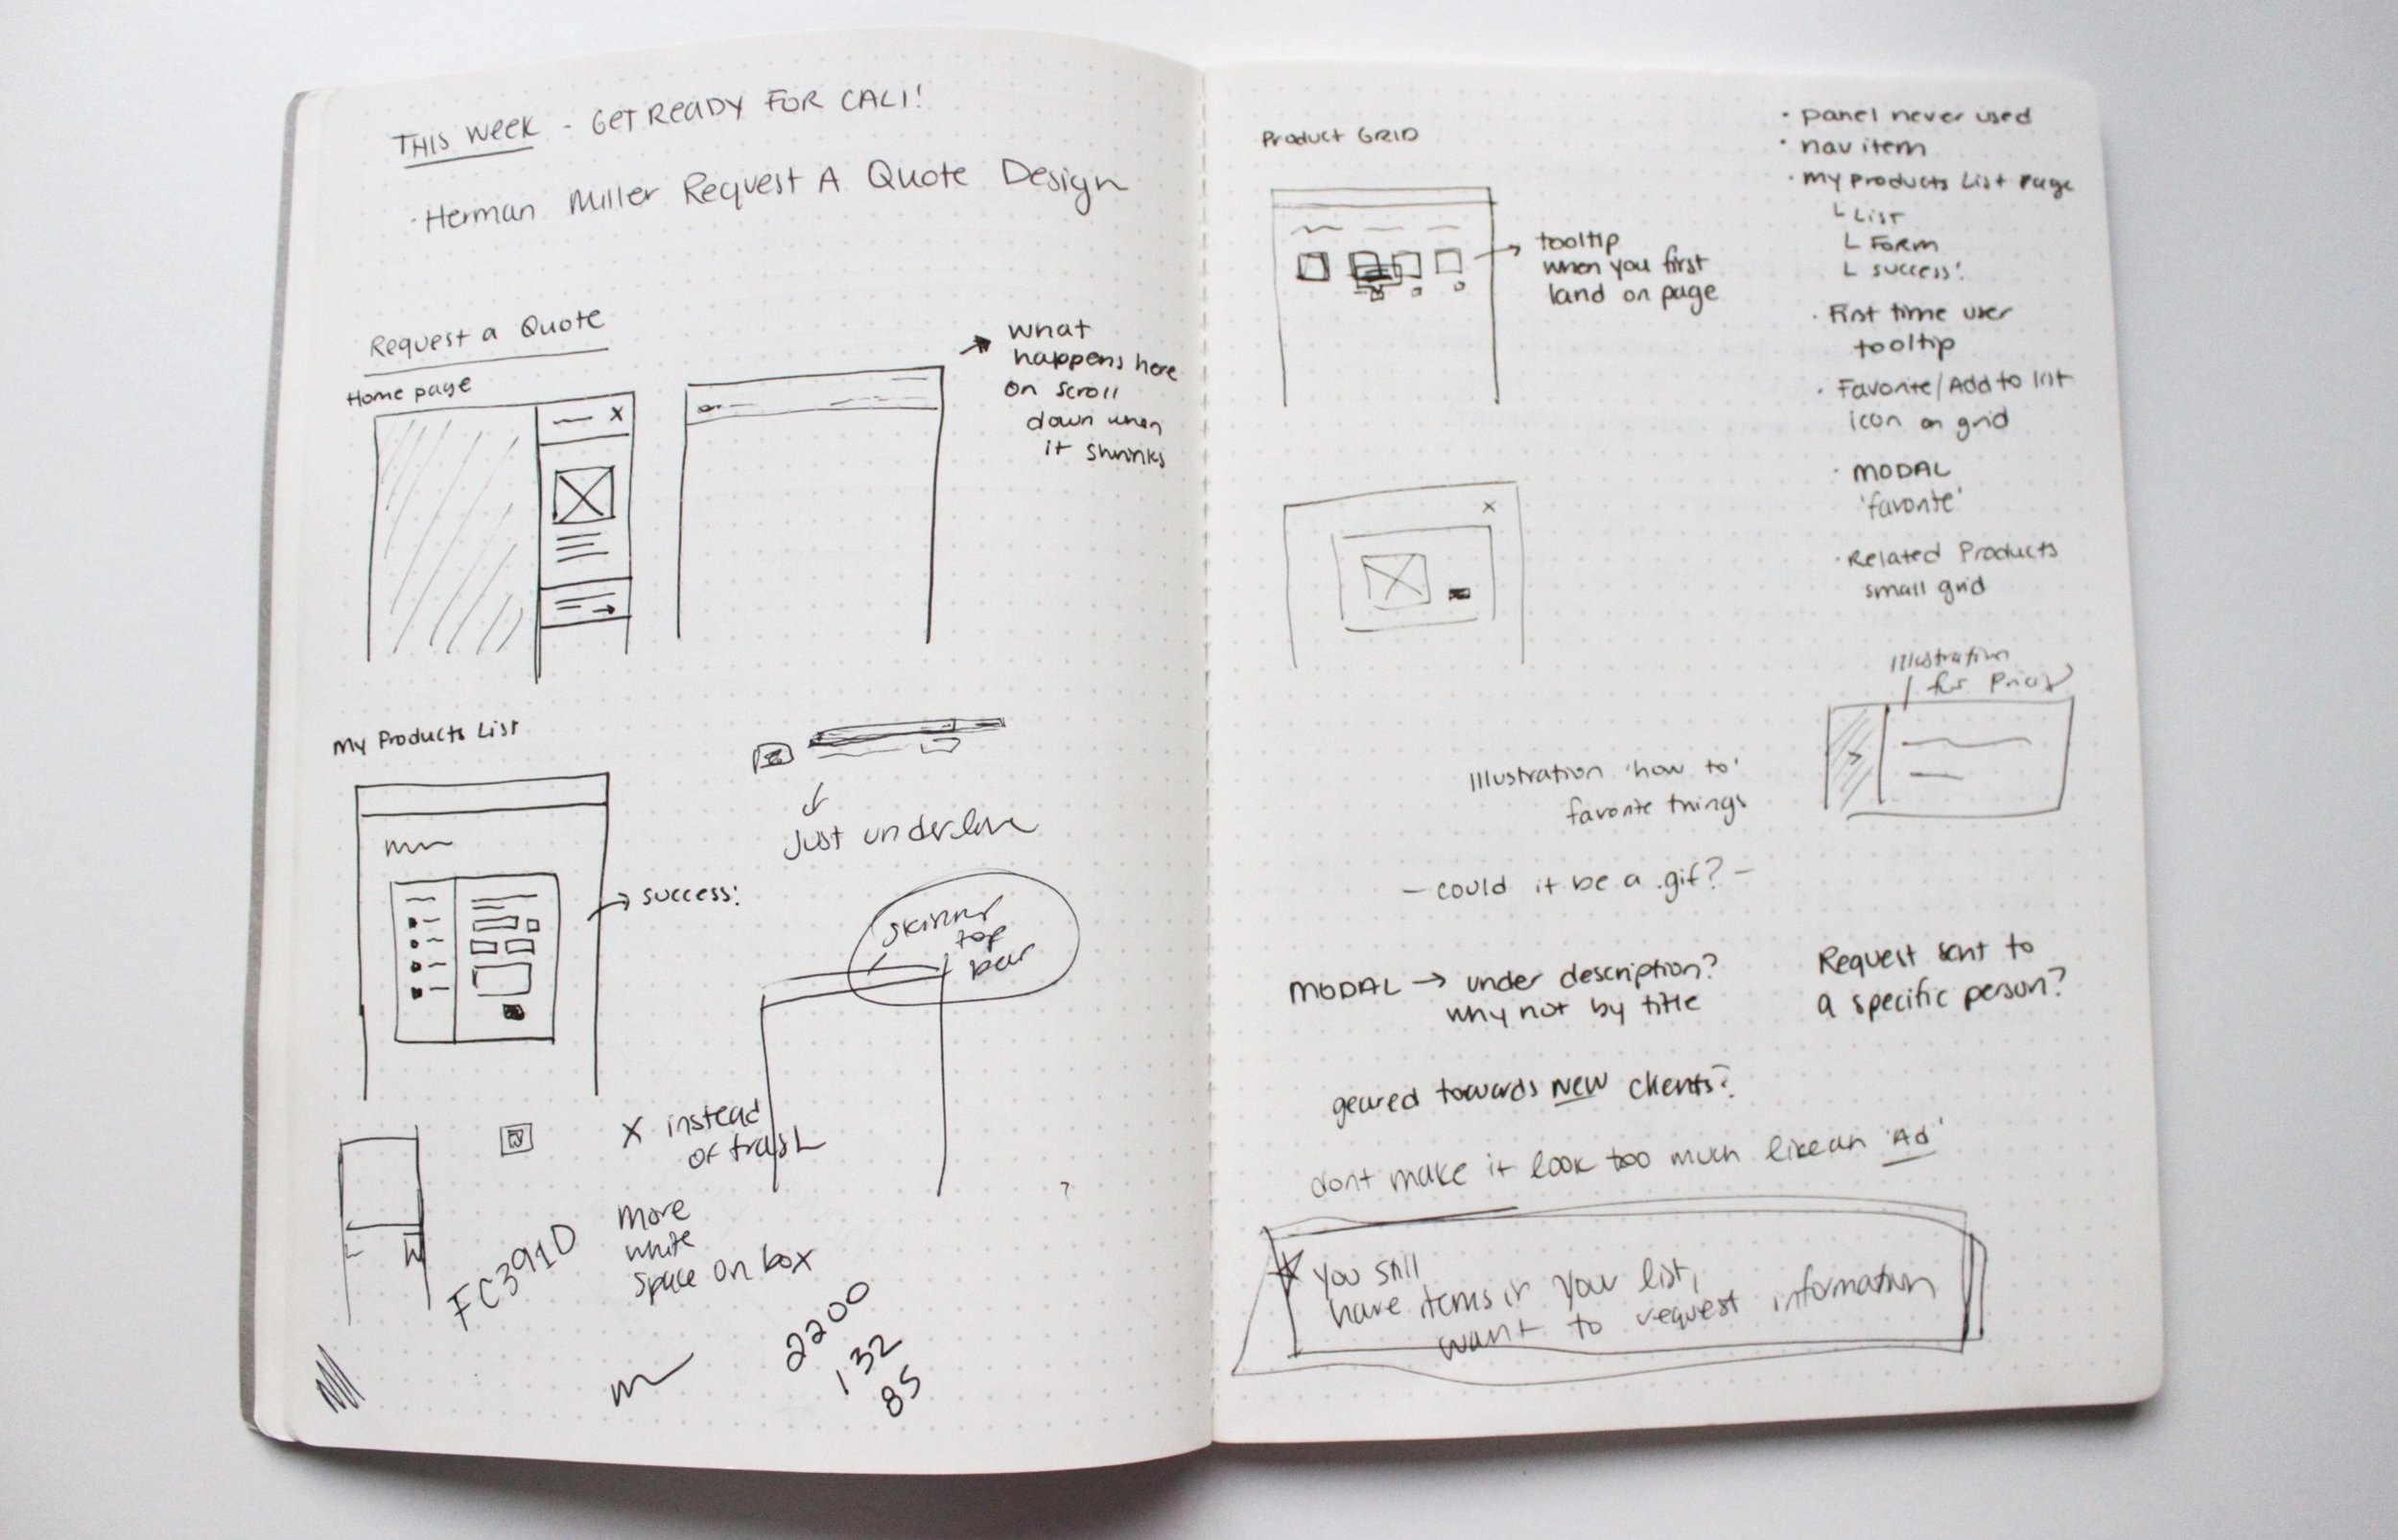 THIS WEEK - GET READY FOR CALI!
· Herman Miller Request A Quote Design
Request a Quote
Home page
X
what
happens here
on scroll
down when
it shrinks
My Products List
success!
Just underline
skinny
top
bar
X instead
of trash
more
white
space on box
FC391D
2200
132
85
?
Product GRID
tooltip
when you first
land on page
X
· panel never used
· nav item
· My Products List Page
L List
L Form
L success!
· First time user
tooltip
· Favorite/Add to list
icon on grid
· MODAL
'favorite'
· Related Products
small grid
Illustration
for
Illustration 'how to'
favorite things
- could it be a .gif? -
MODAL → under description?
why not by title
Request sent to
a specific person?
geared towards NEW clients?
dont make it look too much like an 'Ad'
You still
have items in your list,
want to request information